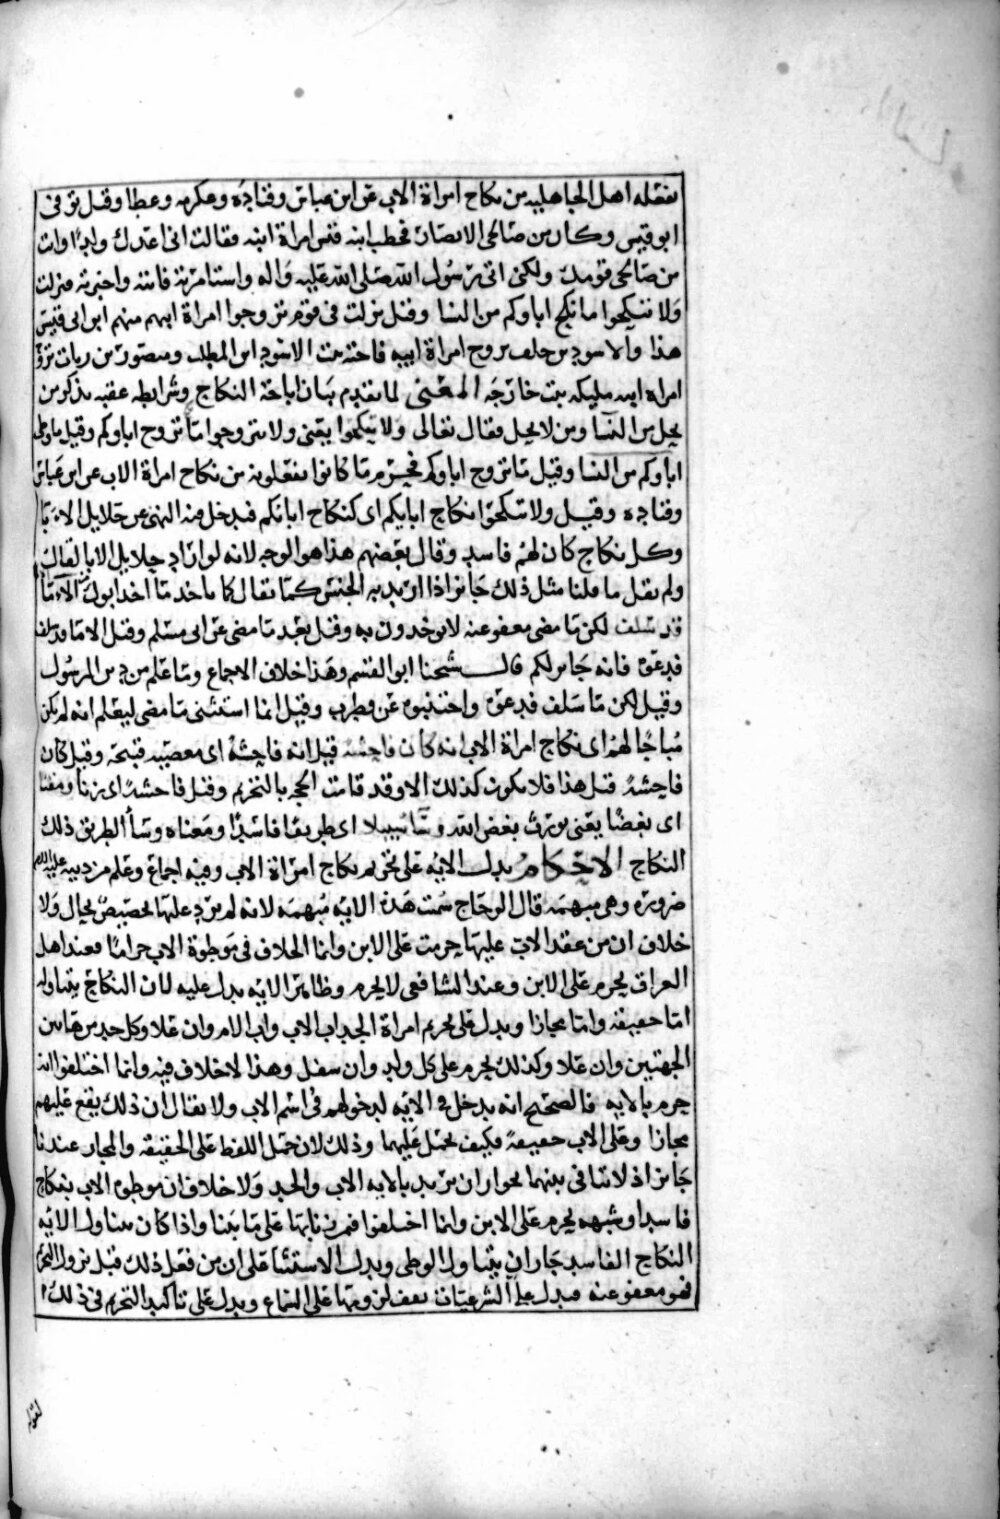 يفعله اهل الجاهلية من نكاح امراة الاب عن ابن عباس وقتادة وعكرمه وعطا وقيل توفى
ابو قيس وكان من صالحى الانصار فخطب ابنه قيس امراة ابيه فقالت انى اعدك ولدًا وانت
من صالحى قومك ولكنى اتى رسول الله صلى الله عليه واله واستامرته فاتته واخبرته فنزلت
ولا تنكحوا ما نكح اباوكم من النسا وقيل نزلت فى قوم تزوجوا امراة ابيهم منهم ابن ابى قيس
هذا والاسود بن خلف تزوج امراة ابيه فاخته بنت الاسود ابن المطلب ومنصور بن ريان تزوج
امراه ابيه مليكه بنت خارجه المعنى لما تقدم بيان اباحة النكاح وشرايطه عقبه بذكر من
يحل من النسا ومن لا يحل فقال تعالى ولا تنكحوا يعنى ولا تتزوجوا ما تزوج اباوكم وقيل ما وطى
اباوكم من النسا وقيل ما تزوج اباوكم فحرم ما كانوا يفعلونه من نكاح امراة الاب عن ابن عباس
وقتاده وقيل ولا تنكحوا نكاح ابايكم اى كنكاح ابائكم فيدخل فيه النهى عن حلايل الاباء
وكل نكاح كان لهم فاسد وقال بعضهم هذا هو الوجه لانه لو اراد حلايل الابا لقال من
ولم يقل ما قلنا مثل ذلك جايز اذا اريد به الجنس كما يقال كا ياخذ ما اخذ ابوك الا ما
قد سلف لكن ما مضى معفو عنه لا يوخذون به وقيل بعد ما مضى عن ابى مسلم وقيل الا ما قد سلف
فدعوه فانه جايز لكم قال شيخنا ابو القسم وهذا خلاف الاجماع وما علم من دين الرسول
وقيل لكن ما سلف فدعوه واجتنبوه عن قطرب وقيل انما استثنى ما مضى ليعلم انه لم يكن
مباحًا لهم اى نكاح امراة الاب انه كان فاحشة قيل انه فاحشة اى معصيه قبيحة وقيل كان
فاحشة قبل هذا فلا يكون كذلك الا وقد قامت الحجه بالتحريم وقيل فاحشة اى زنا ومقتا
اى بغضًا يعنى يورث بغض الله وسا سبيلا اى طريقا فاسدًا ومعناه وسا الطريق ذلك
النكاح الاحكام يدل الايه على تحريم نكاح امراة الاب وفيه اجماع وعلم من دينه عليه السلم
ضرورة وهى مبهمة قال الزجاج سمت هذه الايه مبهمه لانه لم يرد عليها تخصيص بحال ولا
خلاف ان من عقد الاب عليها حرمت على الابن وانما الخلاف فى موطوة الاب حرامًا فعند اهل
العراق يحرم على الابن وعند الشافعى لا يحرم وظاهر الايه يدل عليه لان النكاح يتناوله
اما حقيقة واما مجازا ويدل على تحريم امراة الجد اب الاب واب الام وان علا وكل جد من هاتين
الجهتين وان علا وكذلك يحرم على كل ولد وان سفل وهذا لا خلاف فيه وانما اختلفوا انه
حرم بالايه فالصحيح انه يدخل فى الايه لدخولهم فى اسم الاب ولا يقال ان ذلك يقع عليهم
مجازا وعلى الاب حقيقة فكيف يحمل عليهما وذلك لان حمل اللفظ على الحقيقة والمجاز عندنا
جايز اذ لا تنافى بينهما لجواز ان يريد بالايه الاب والجد ولا خلاف ان موطوه الاب بنكاح
فاسد او شبهه يحرم على الابن وانما اختلفوا فمن زنا بها على ما بينا واذا كان يتناول الايه
النكاح الفاسد جاز ان يتناول الوطى ويدل الاستثنا على ان من فعل ذلك قبل نزول التحريم
فهو معفو عنه فيدل على الشرعيات يقف لزومها على السماع ويدل على تاكيد التحريم فى ذلك
لقوله